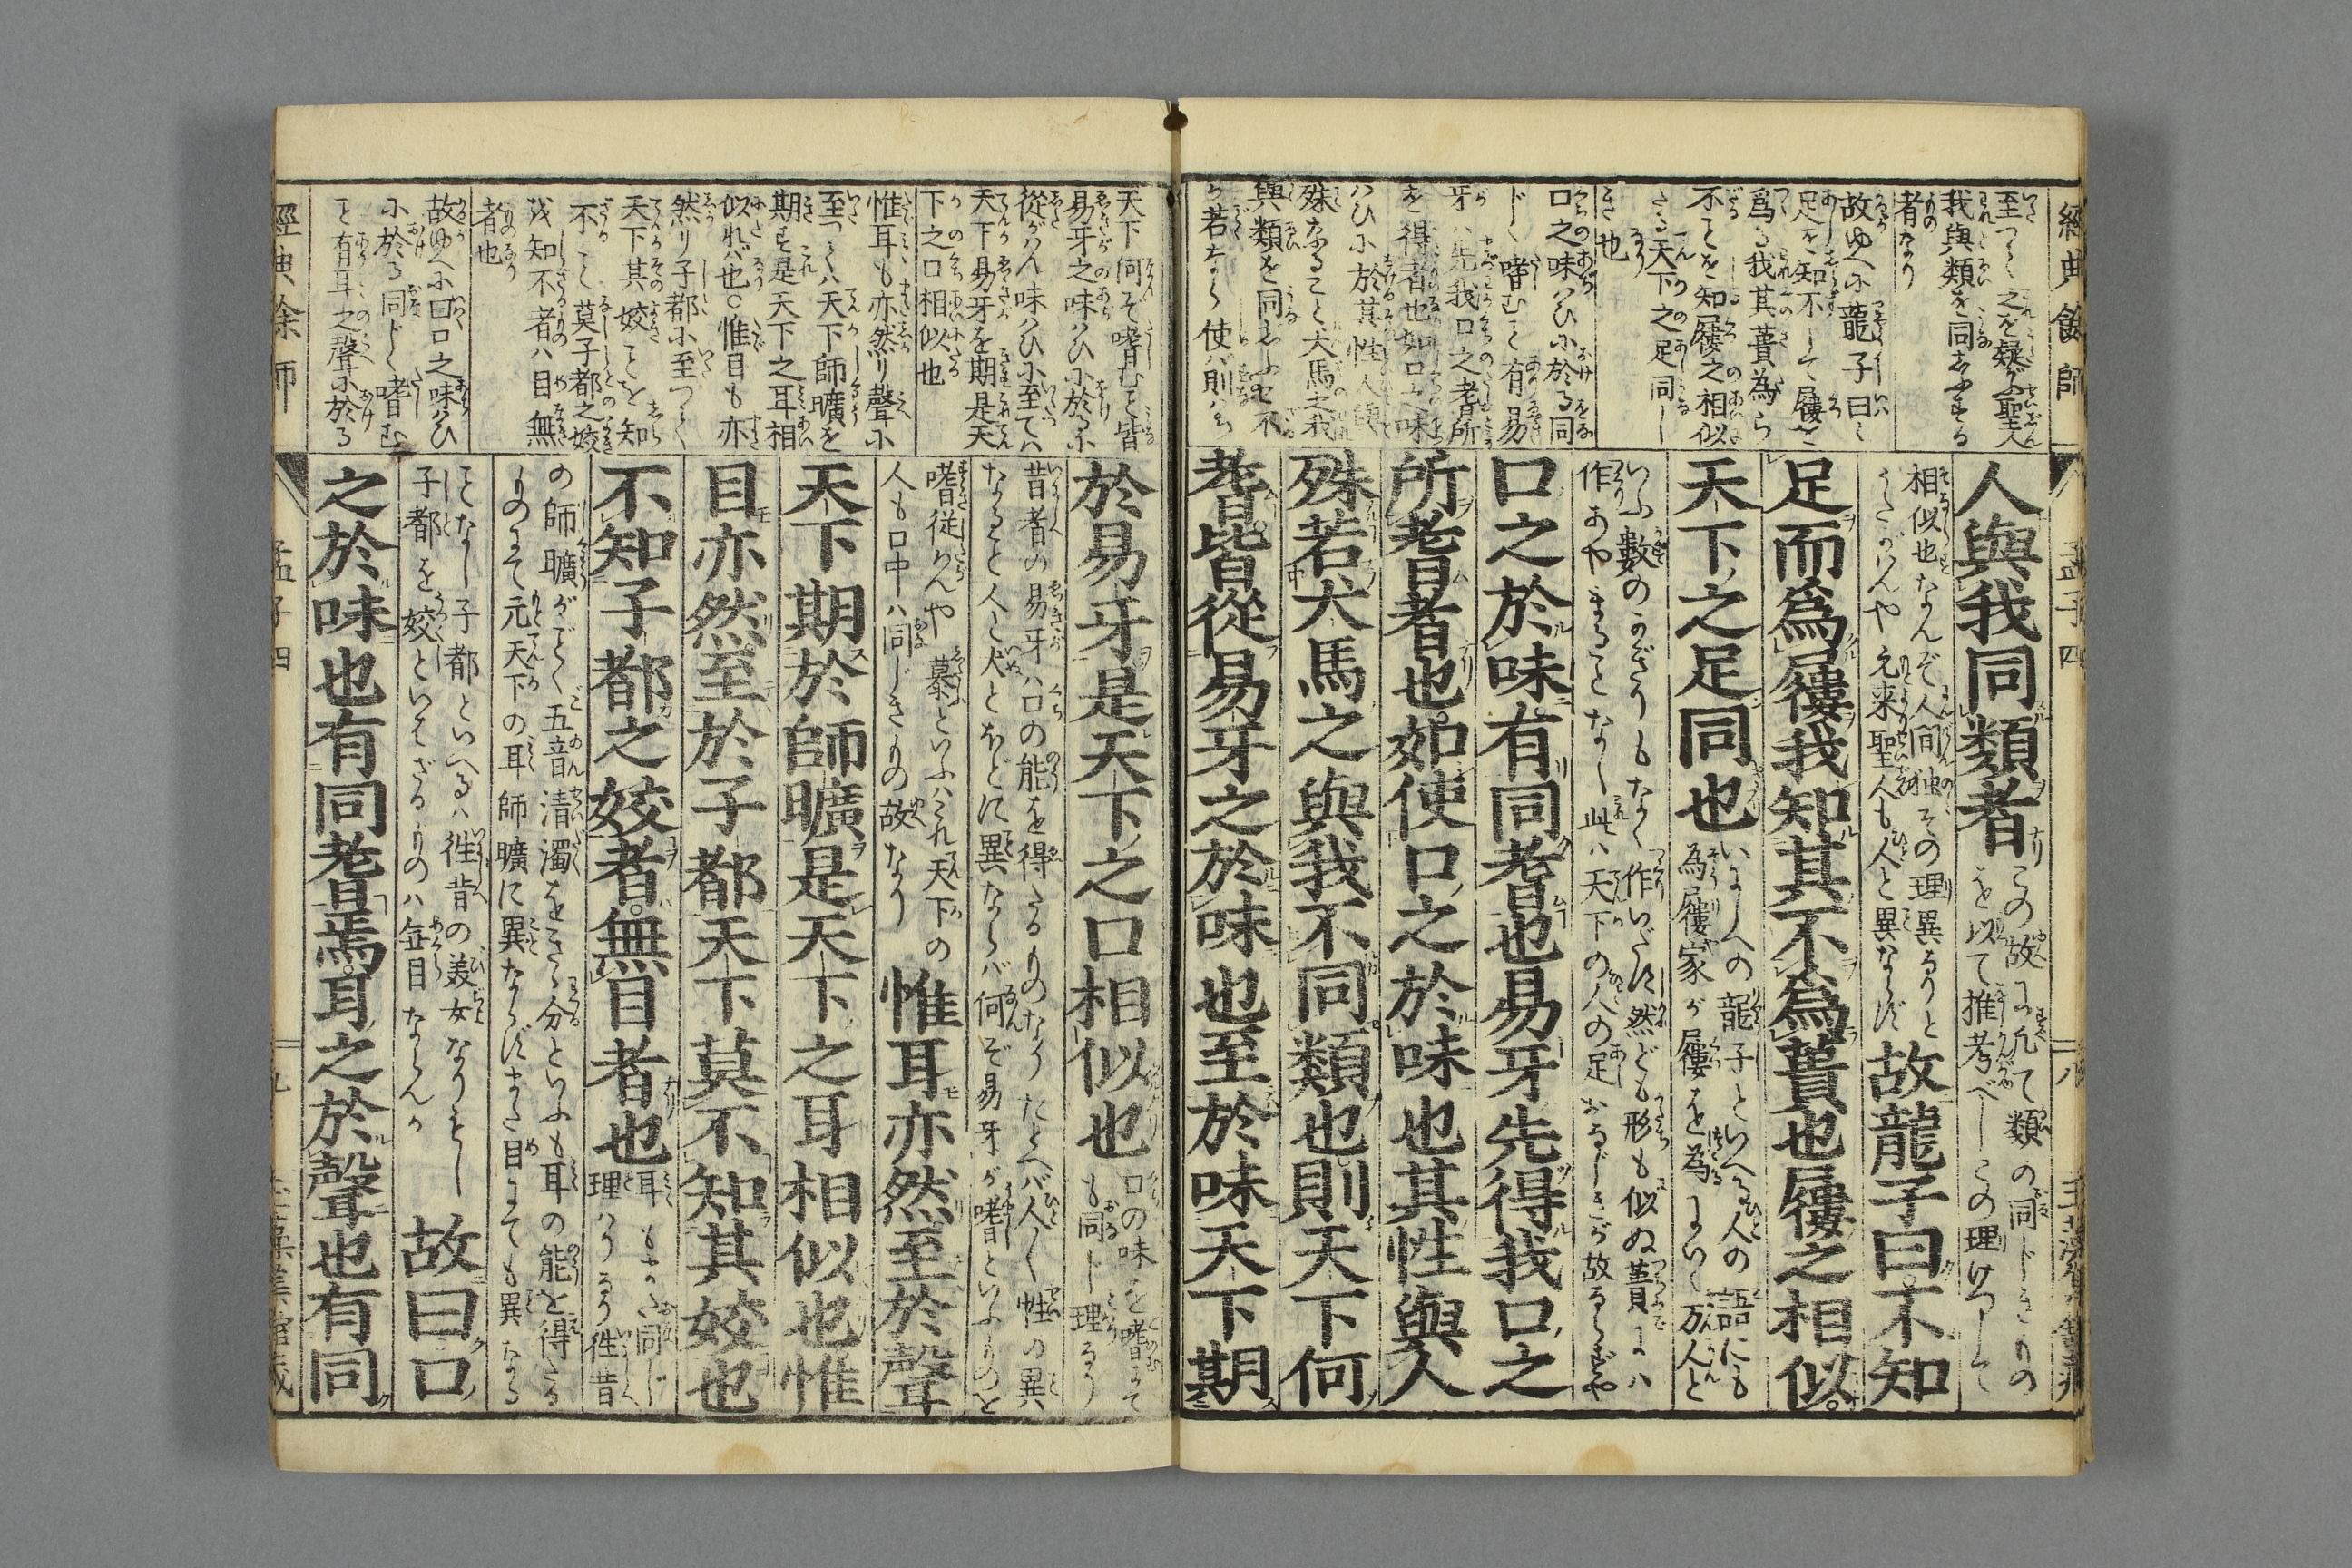 經典餘師
孟子四
八
至つて之を疑ふ聖人
我與類を同ふする
者なり
故ゆへに龍子曰く
足を知不して屨を
爲る我其蕢為ら
不ことを知屨之相似
たる天下之足同し
き也
口之味ハひに於る同
じく嗜むこと有易
牙ハ先我口之耆所
を得者也如口之味
ハひに於其性人與
殊なること犬馬之我
與類を同ふせ不
が若なら使バ則ハち
人與我同類者 この故に凡て類の同じきものを以て推考べしこの理けつして
相似也なんぞ人間独その理異なりとうたがハんや元来聖人も人と異ならず 故龍子曰不知
足而爲屨我知其不為蕢也屨之相似
天下之足同也 いにしへの龍子といへる人の語にも為屨家が屨を為るにハ万人と
いふ數のかぎりもなく作いだす然ども形も似ぬ蕢にハ作あやまることなし此ハ天下の人の足おなじきが故ならずや
口之於味有同耆也易牙先得我口之
所耆者也如使口之於味也其性與人
殊若犬馬之與我不同類也則天下何
耆皆從易牙之於味也至於味天下期
天下何ぞ嗜むこと皆
易牙之味ハひに於るに
從がハん味ハひに至てハ
天下易牙を期是天
下之口相似也
惟耳も亦然り聲に
至つてハ天下師曠を
期す是天下之耳相
似れバ也○惟目も亦
然り子都に至つて
天下其姣ことを知
不こと莫子都之姣
を知不者ハ目無
者也
故ゆへに曰口之味ハひ
に於る同じく嗜む
こと有耳之聲に於る
於易牙是天下之口相似也 口の味を嗜にても同じ理なり
昔者の易牙ハ口の能を得たるものなりたとへバ人〻性の異なること人と犬とほどに異ならバ何ぞ易牙が嗜といふものを
嗜従ハんや慕といふハこれ天下の人も口中ハ同じきものゆへなり 惟耳亦然至於聲
天下期於師曠是天下之耳相似也惟
目亦然至於子都天下莫不知其姣也
不知子都之姣者無目者也 耳もまた同じ理ハりなり徃昔
の師曠がごく五音清濁をきゝ分といふも耳の能を得たるものにて元天下の耳師曠に異ならずまた目にても異なる
ことなし子都といへるハ徃昔の美女なりもし子都を姣といはざるものハ毎目ならんか 故曰口
之於味也有同耆焉耳之於聲也有同
經典餘師
孟子四
九